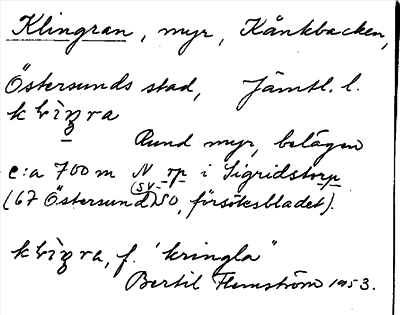 Klingran, myr, Kånkbacken,
Östersunds stad, Jämtl. l.
Rund myr, belägen
c:a 700 m N rp i Sigridstorp
(67 Östersund (SV-)SO, försöksbladet).
f. 'kringla'
Bertil Flemström 1953.